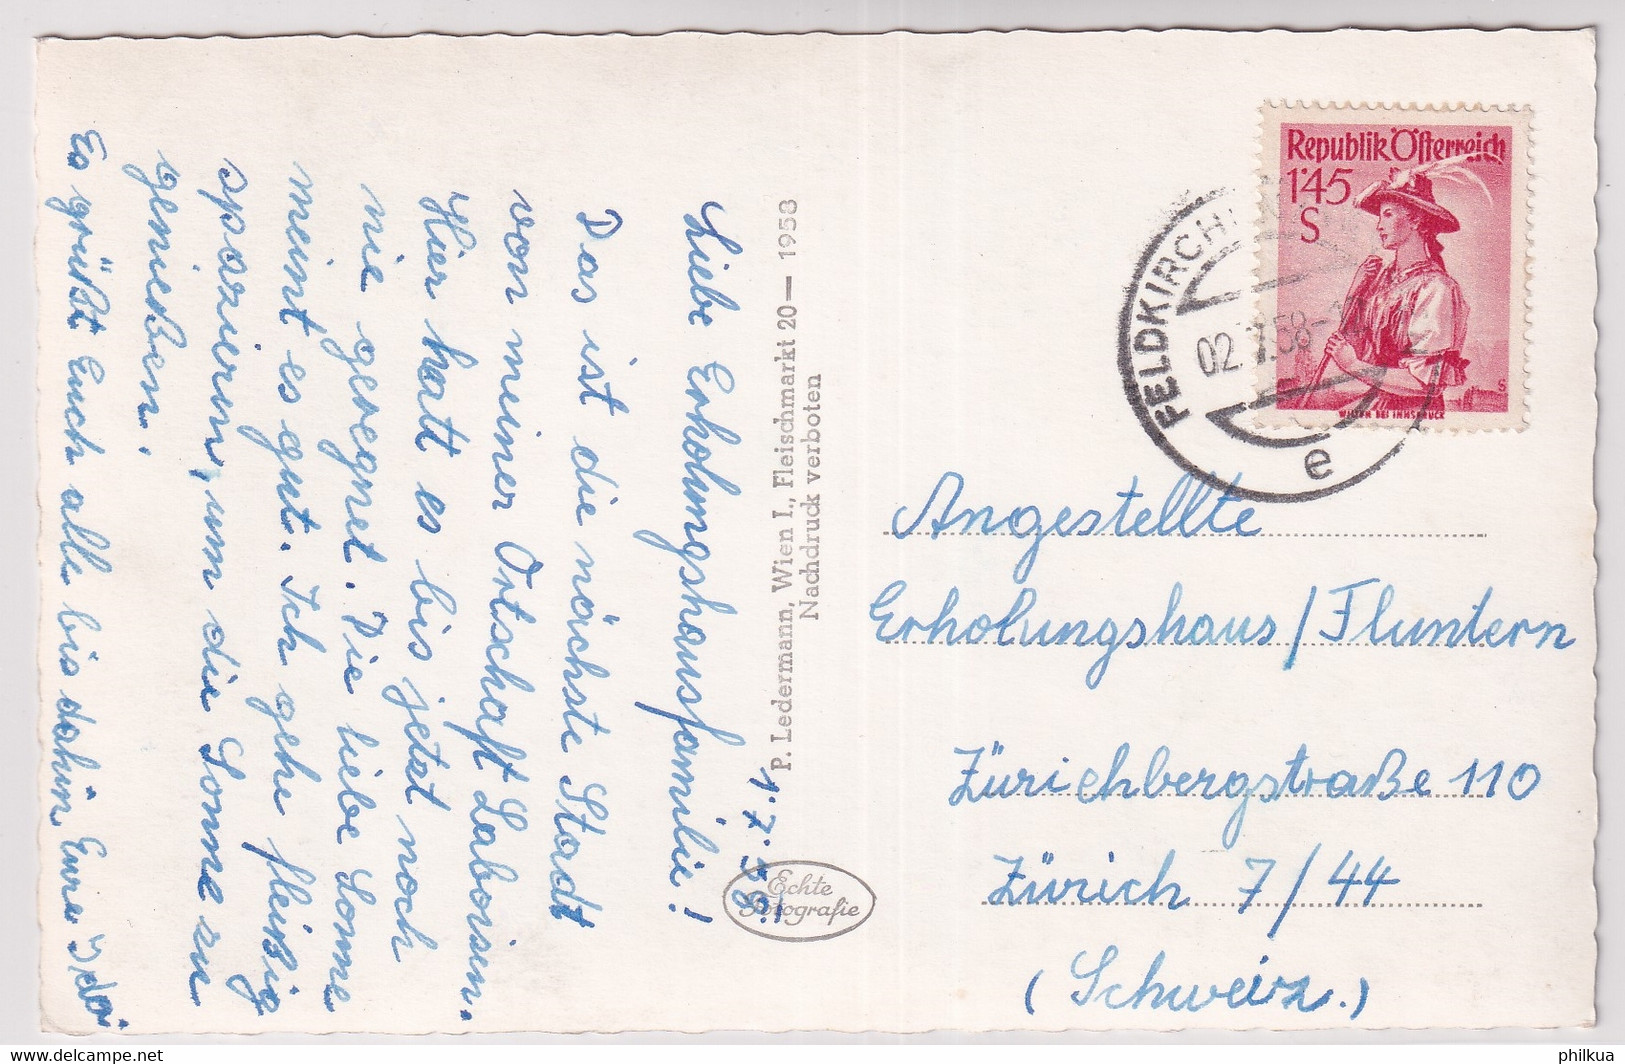 1.7.58!
Liebe Erholungshausfamilie!
Das ist die nächste Stadt
von meiner Ortschaft Laborsen.
Hier hatt es bis jetzt noch
nie geregnet. Die liebe Sonne
meint es gut. Ich gehe fleißig
spazieren, um die Sonne zu
genießen.
Es grüßt Euch alle bis dahin Eure Ida
P. Ledermann, Wien I., Fleischmarkt 20 — 1958
Nachdruck verboten
Echte
Fotografie
Republik Österreich
1'45
S
WILTEN BEI INNSBRUCK
FELDKIRCH
02.7.58-12
e
Angestellte
Erholungshaus/Fluntern
Zürichbergstraße 110
Zürich 7/44
(Schweiz.)
philkua
www.delcampe.net